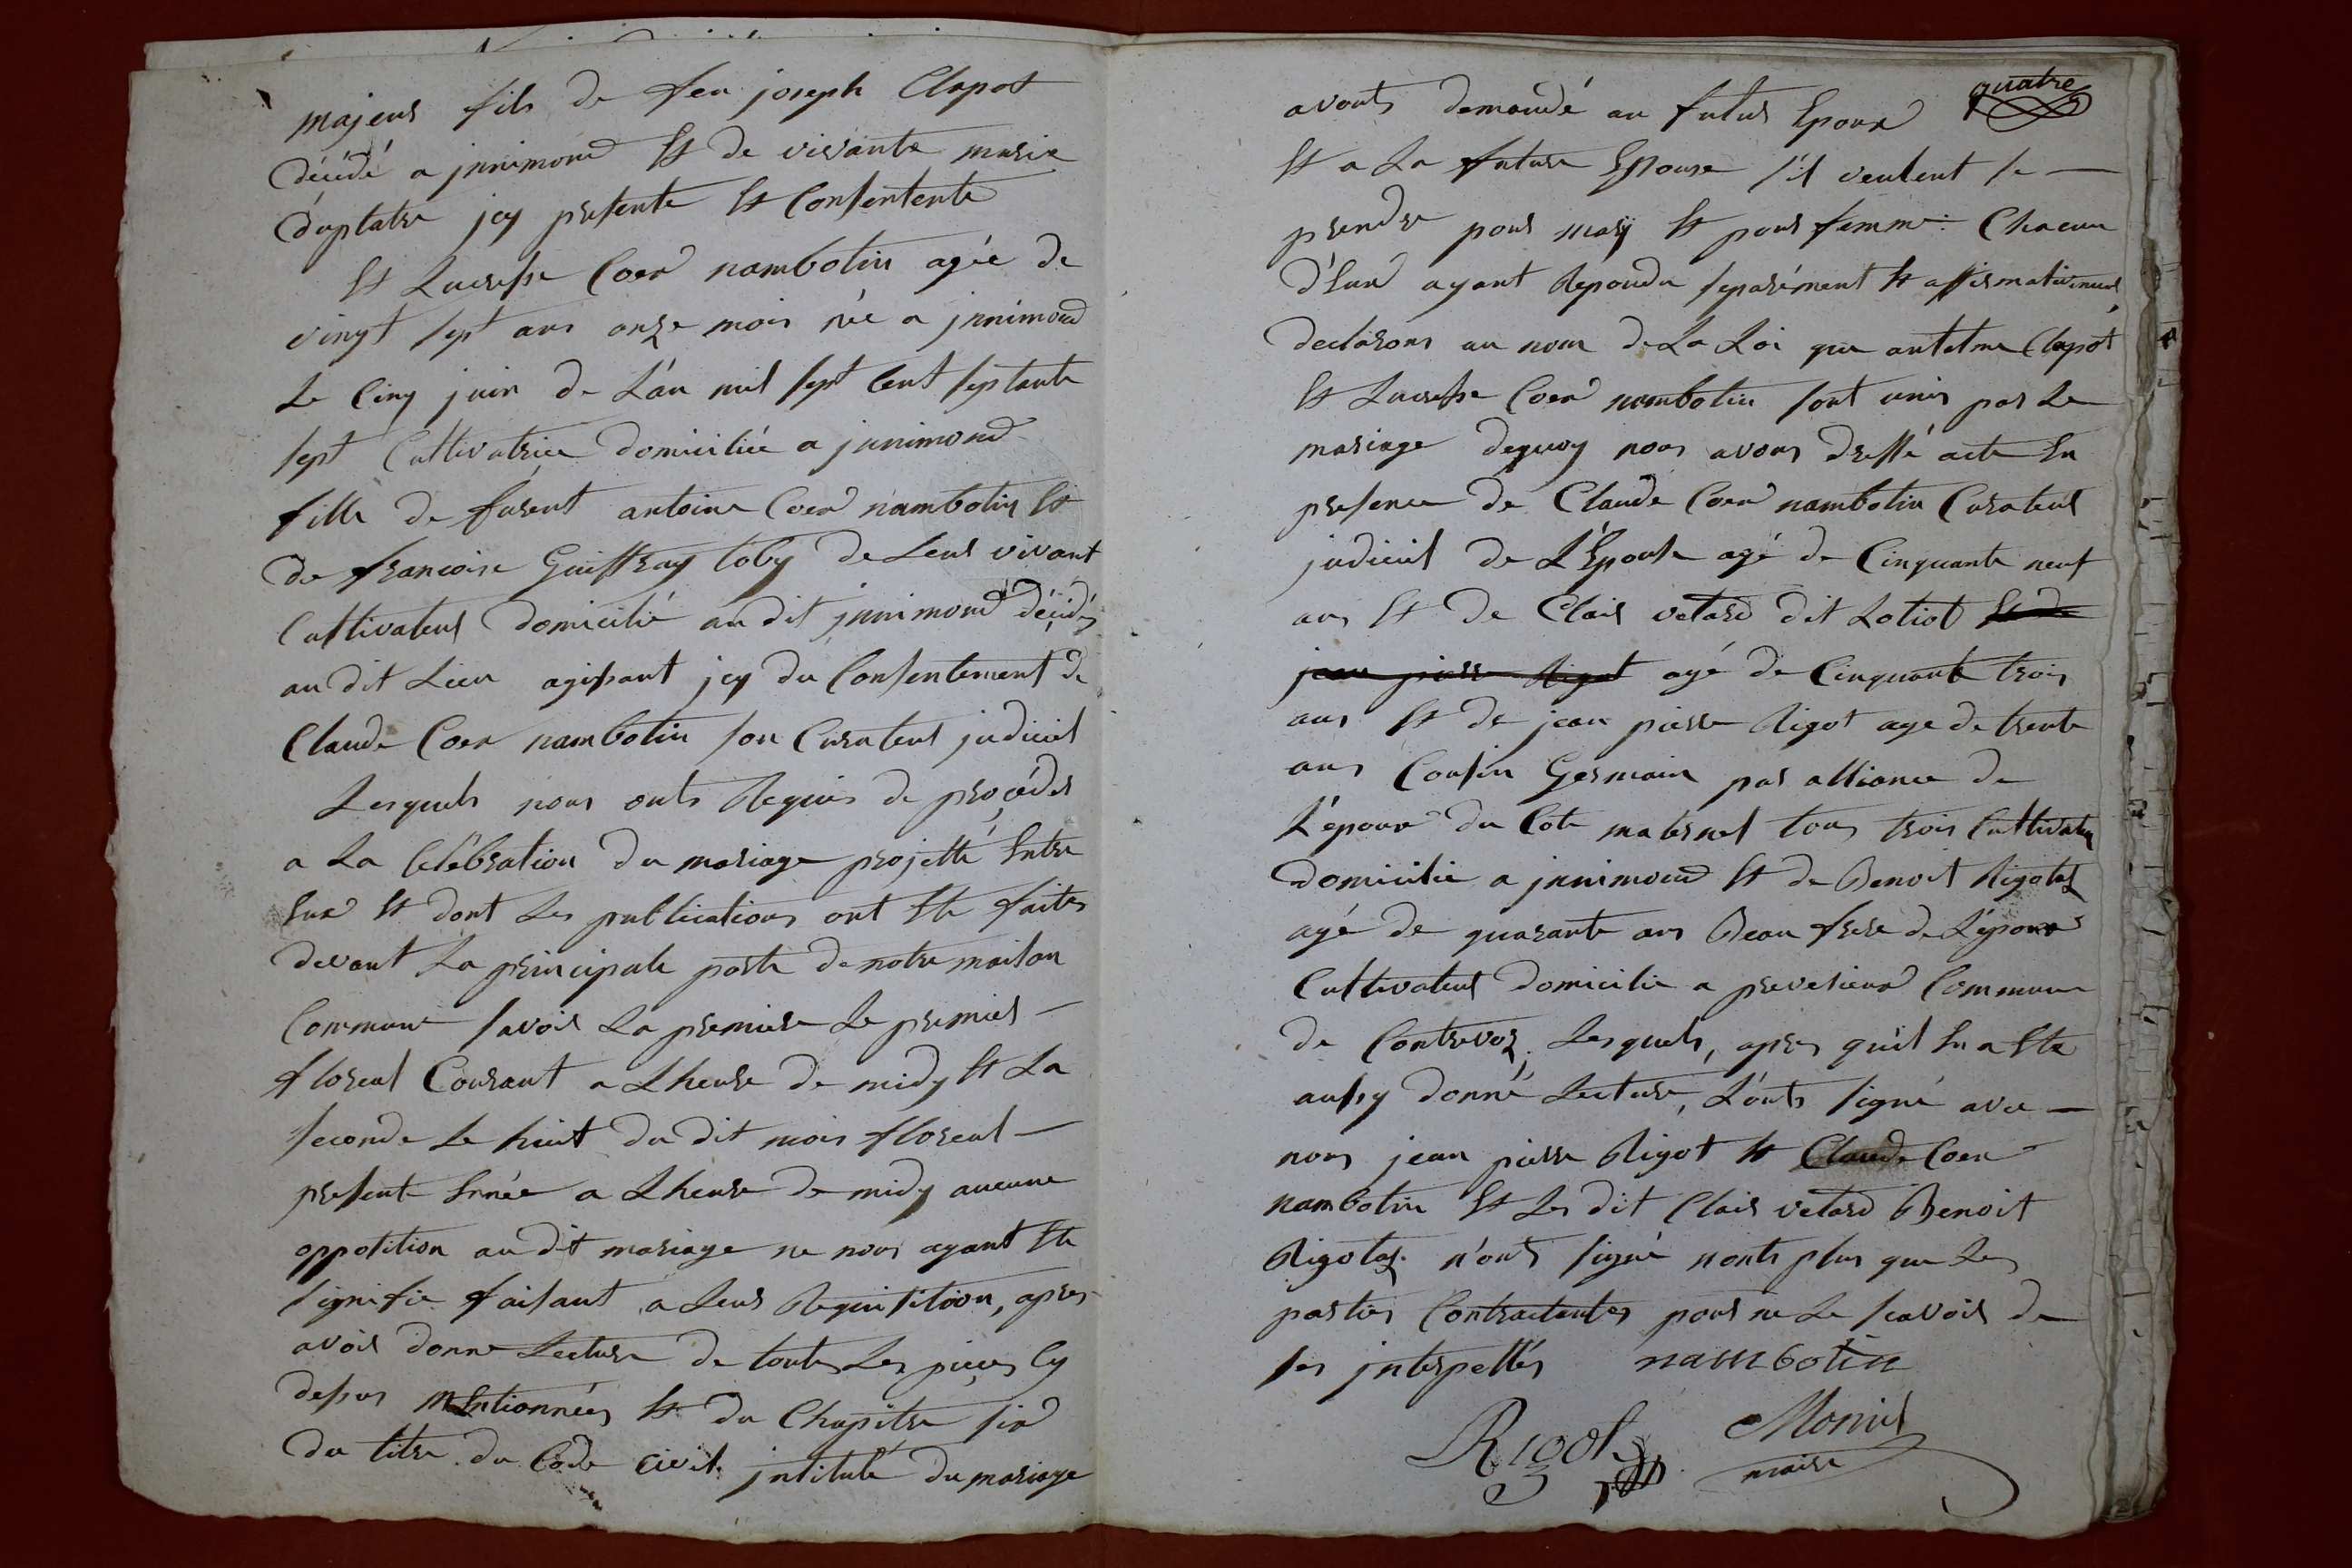 majeur fils de feu joseph Clapot
décédé a jnnimond Et de vivante marie
duplatre jcy presente Et Consentente
Et Lucresse Coer nambotin agée de
vingt sept ans onze mois née a jnnimond
Le Cinq juin de L'an mil sept Cent septante
sept Cultivatrice domiciliée a jnnimond
fille de furent antoine Coer nambotin Et
de francoise Guiffray toby de Leur vivant
Cultivateur domicilié au dit jnnimond décédés
au dit Lieu agissant jcy du Consentement de
Claude Coer nambotin son Curateur judiciel
Lesquels nous onts Requis de procéder
a La Célébration du mariage projetté Entre
Eux Et dont Les publications ont Ete faites
devant La principale porte de notre maison
Commune savoir La premiere Le premier —
floreal Courant a Lheure de midy Et La
seconde Le huit du dit mois floreal —
presente Année a Lheure de midy aucune
opposition au dit mariage ne nous ayant Ete
signifie faisant a Leur Requisition, apres
avoir donne Lecture de toutes Les pieces Cy
dessus mEntionnées Et du Chapitre six
du titre du Code civil jntitulé du mariage
quatre
avonts demandé au futur Epoux
Et a La future Epouse s'il veulent se —
prendre pour mary Et pour femme: Chacun
d'Eux ayant Repondu separément Et affirmativement,
declarons au nom de La Loi que antelme Clapot
Et Lucresse Coer nambotin sont unis par Le
mariage dequoy nous avons dressé acte En
presence de Claude Coer nambotin Curateur
judiciel de L'Epouse agé de Cinquante neuf
ans Et de Clair vetard dit Lotiot Et de
jean pierre Rigot agé de Cinquante trois
ans Et de jean pierre Rigot age de trente
ans Cousin Germain par alliance de
L'epoux du Cote maternel tous trois Cultivateur
domicilie a jnnimond Et de Benoit Rigotaz
agé de quarante ans Beau frere de L'époux
Cultivateur domicilie a prevesieux Commune
de Contrevoz. Lesquels, apres qu'il En a Ete
aussy donné Lecture, L'onts signé avec —
nous jean pierre Rigot Et Claude Coer
nambotin Et Les dit Clair vetard Benoit
Rigotaz n'onts signé nonts plus que Les
parties Contractantes pour ne Le scavoir de
ses jnterpellés nambotin
Rigot Moniet
maire